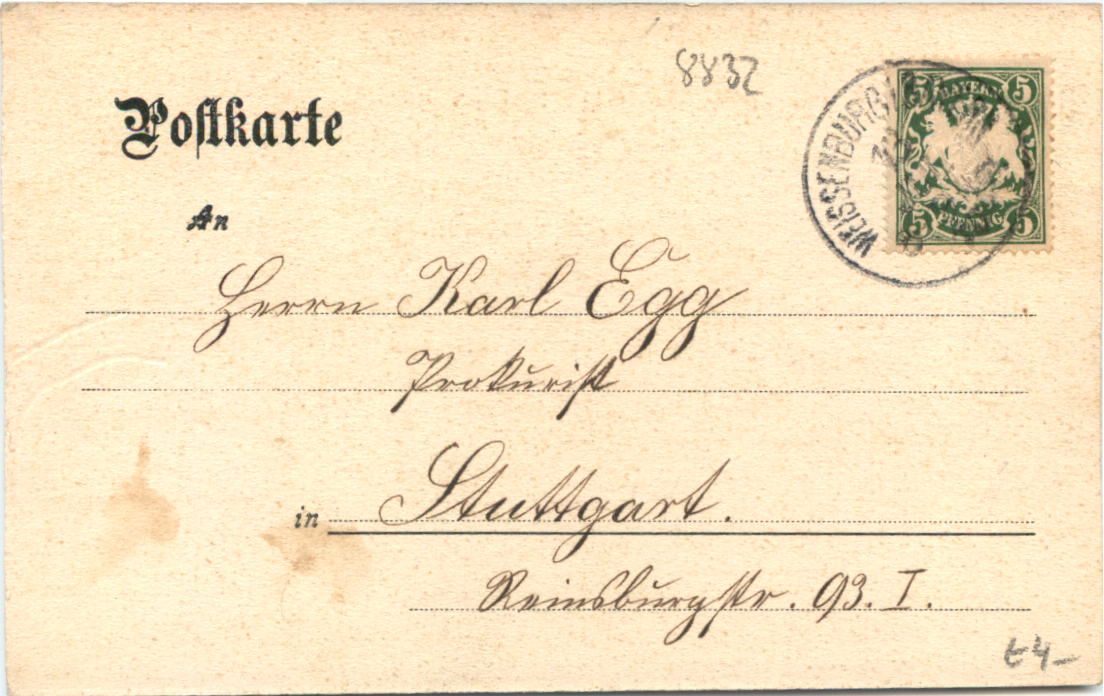 8832
Postkarte
WEISSENBURG
5 BAYERN 5
5 PFENNIG 5
An
Herrn Karl Egg
Prokurist
in Stuttgart.
Reinsburgstr. 93. I.